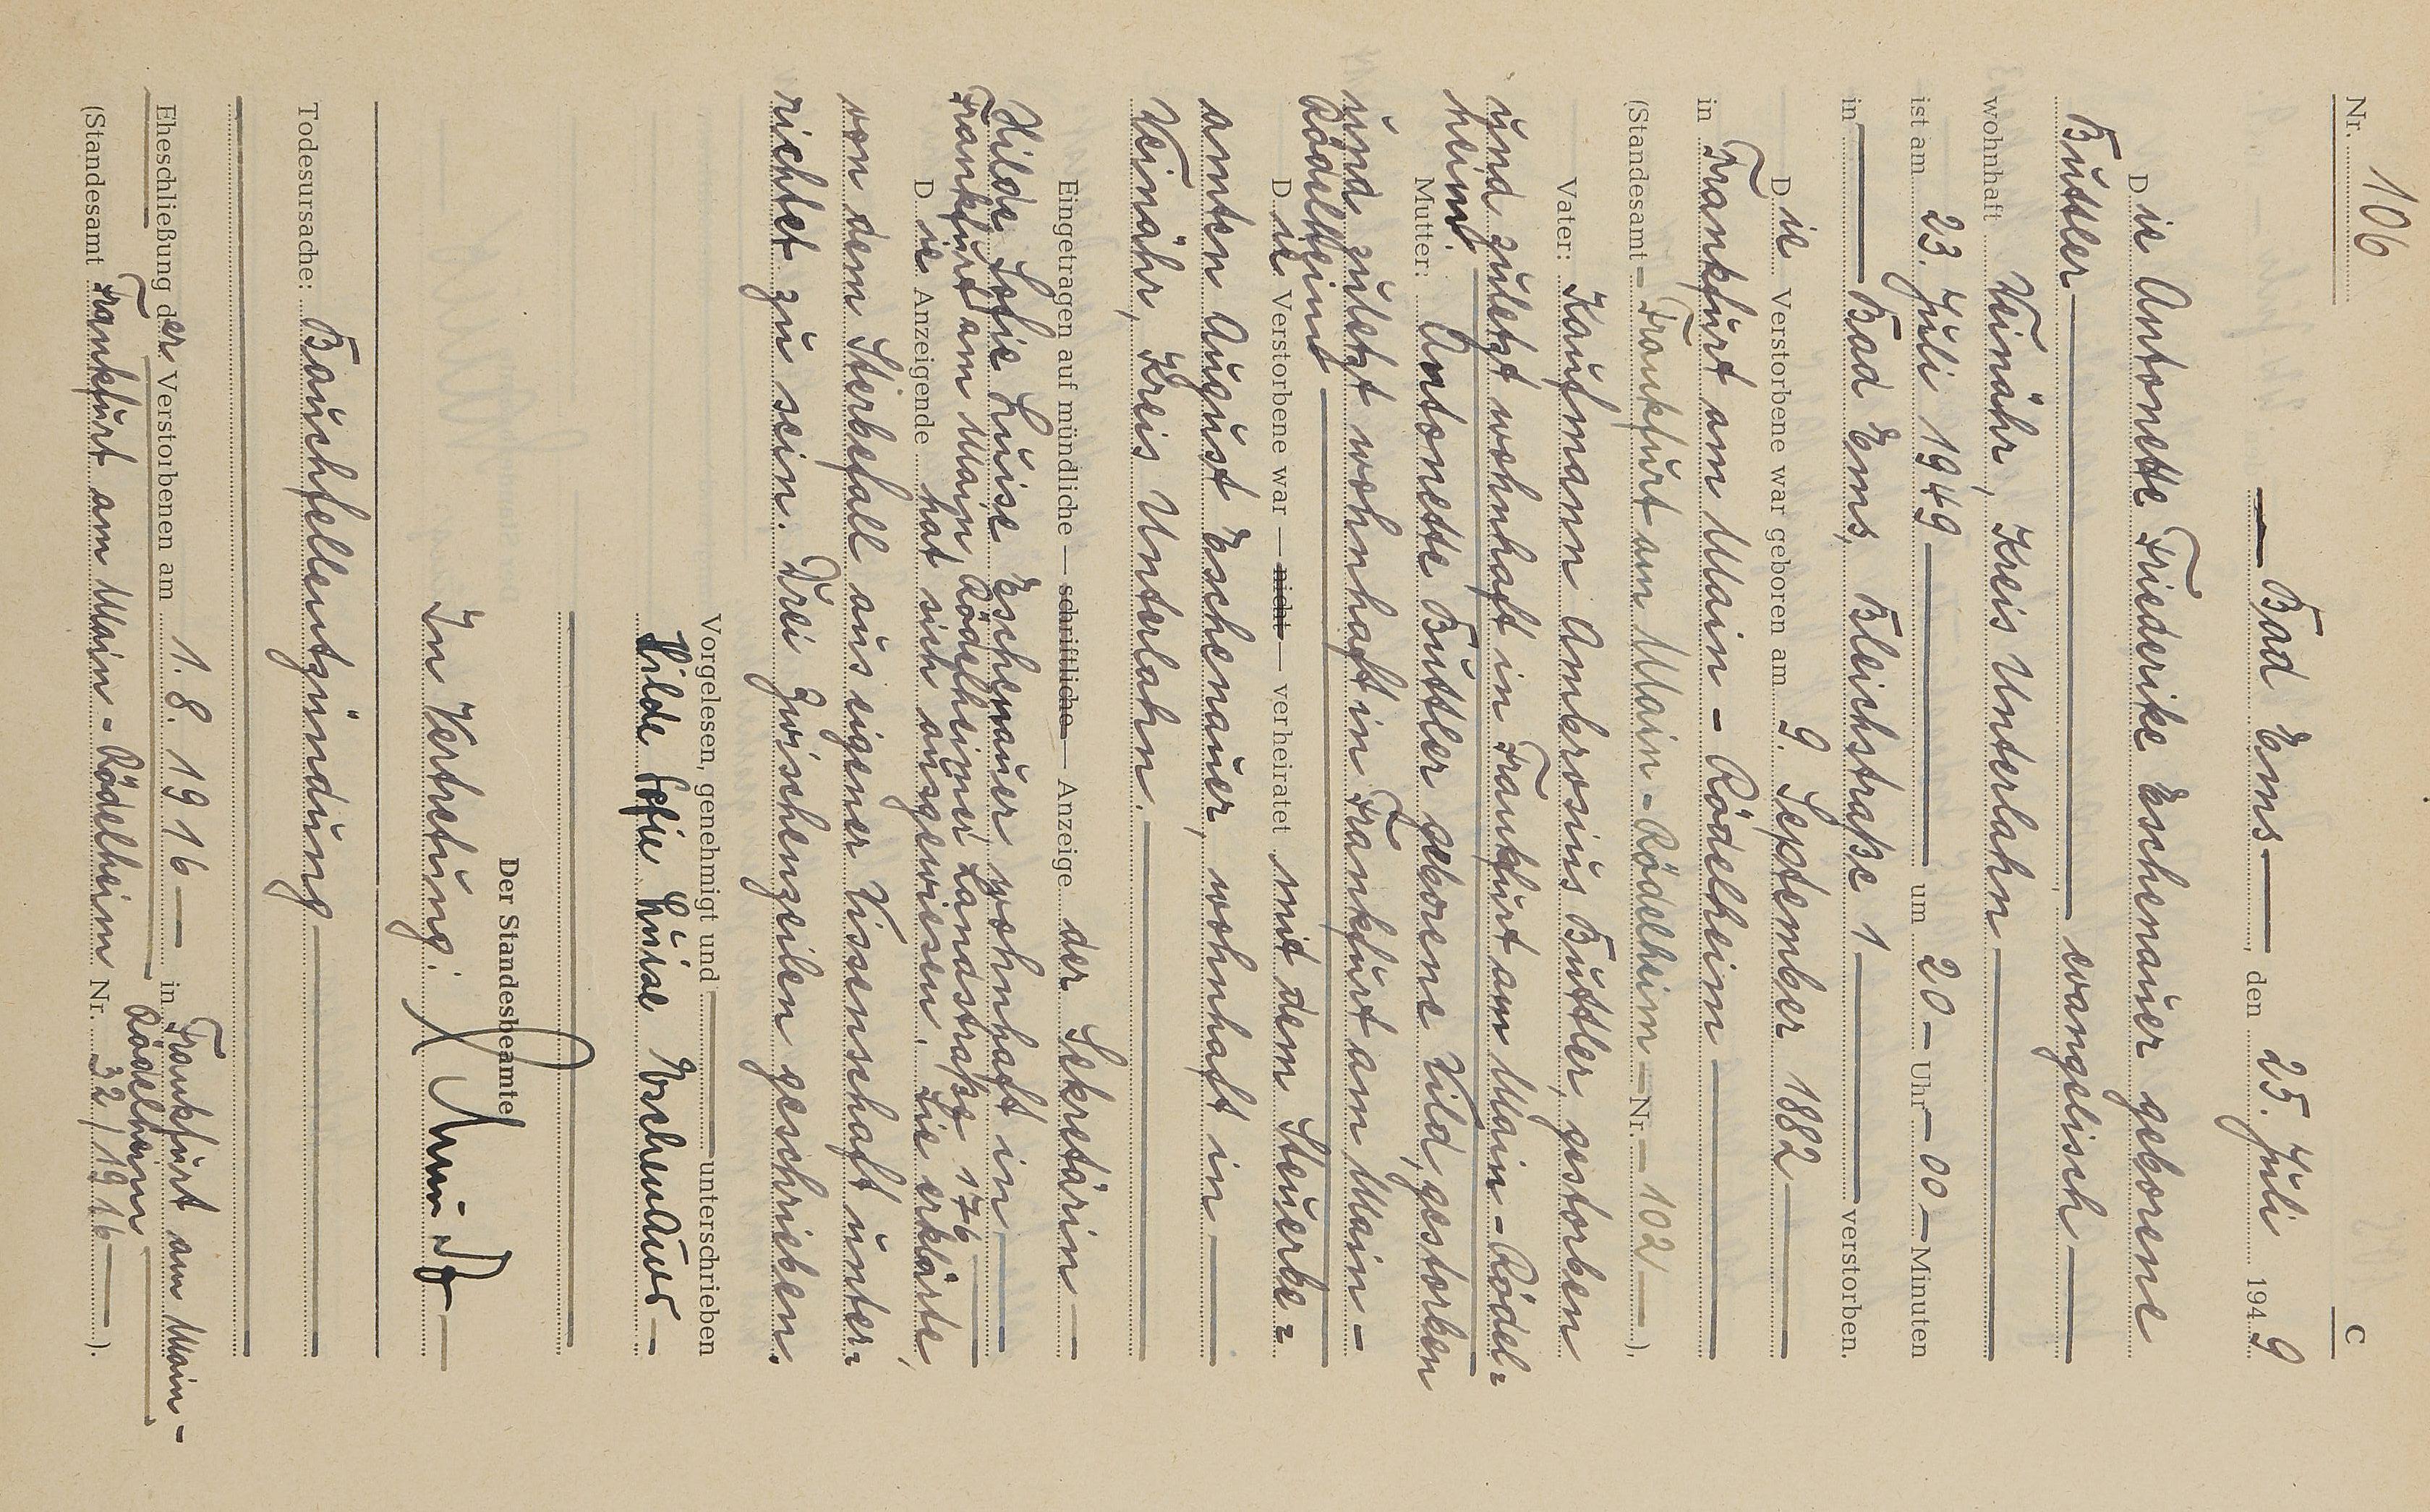 Nr. 106 C
Bad Ems, den 25. Juli 1949
Die Antonette Friederike Eschenauer geborene
Buttler, evangelisch
wohnhaft Weinähr, Kreis Unterlahn
ist am 23. Juli 1949 um 20 Uhr 00 Minuten
in Bad Ems, Bleichstraße 1 verstorben.
Die Verstorbene war geboren am 9. September 1882
in Frankfurt am Main - Rödelheim
(Standesamt Frankfurt am Main - Rödelheim Nr. 102),
Vater: Kaufmann Ambrosius Buttler, gestorben
und zuletzt wohnhaft in Frankfurt am Main - Rödel-
heim
Mutter: Antonette Buttler geborene Wild, gestorben
und zuletzt wohnhaft in Frankfurt am Main -
Rödelheim
Die Verstorbene war — nicht — verheiratet mit dem Steuerbe-
amten August Eschenauer, wohnhaft in
Weinähr, Kreis Unterlahn.
Eingetragen auf mündliche — schriftliche — Anzeige der Sekretärin
Hilde Sofie Luise Eschenauer wohnhaft in
Frankfurt am Main, Rödelheimer Landstraße 176
Die Anzeigende hat sich ausgewiesen. Sie erklärte,
von dem Sterbefall aus eigener Wissenschaft unter-
richtet zu sein. Drei Zwischenzeilen geschrieben.
Vorgelesen, genehmigt und unterschrieben
Hilde Sofie Luise Eschenauer
Der Standesbeamte
In Vertretung:
Todesursache: Bauchfellentzündung
Eheschließung der Verstorbenen am 1. 8. 1916 in Frankfurt am Main -
Rödelheim
(Standesamt Frankfurt am Main - Rödelheim Nr. 32/1916).